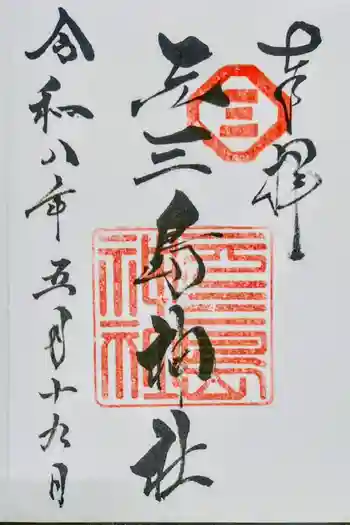 奉拝
元三島神社
令和八年五月十九日
三
三島
神社